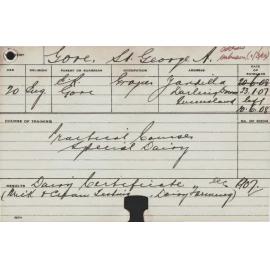 Gore, St. George A.
AGE RELIGION PARENT OR GUARDIAN OCCUPATION ADDRESS DATE OF ENTRANCE
20 Ang C.K. Gore Grazier Yandilla Darling Downs Queensland
23.1.07
left
10.6.08
COURSE OF TRAINING
Practical Course
Special Dairy
RESULTS Dairy Certificate " Dec 1907.
(Milk & Cream Testing Dairy Farming)